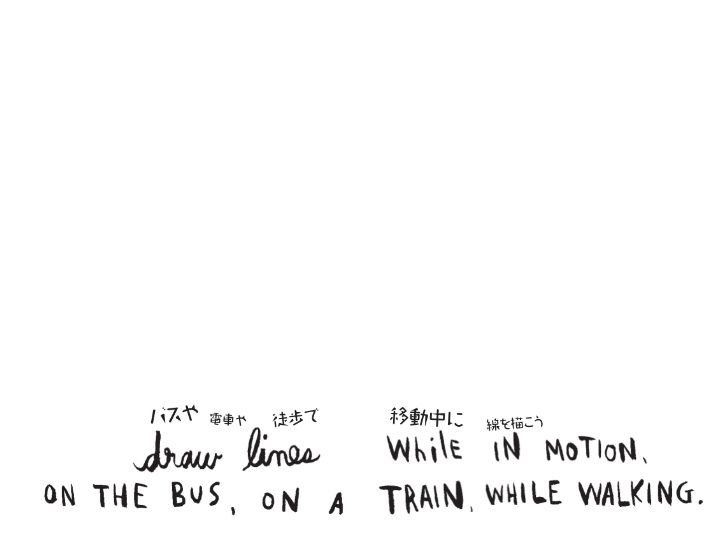 バスや 電車や 徒歩で 移動中に 線を描こう
draw lines While IN MOTION,
ON THE BUS, ON A TRAIN, WHILE WALKING.